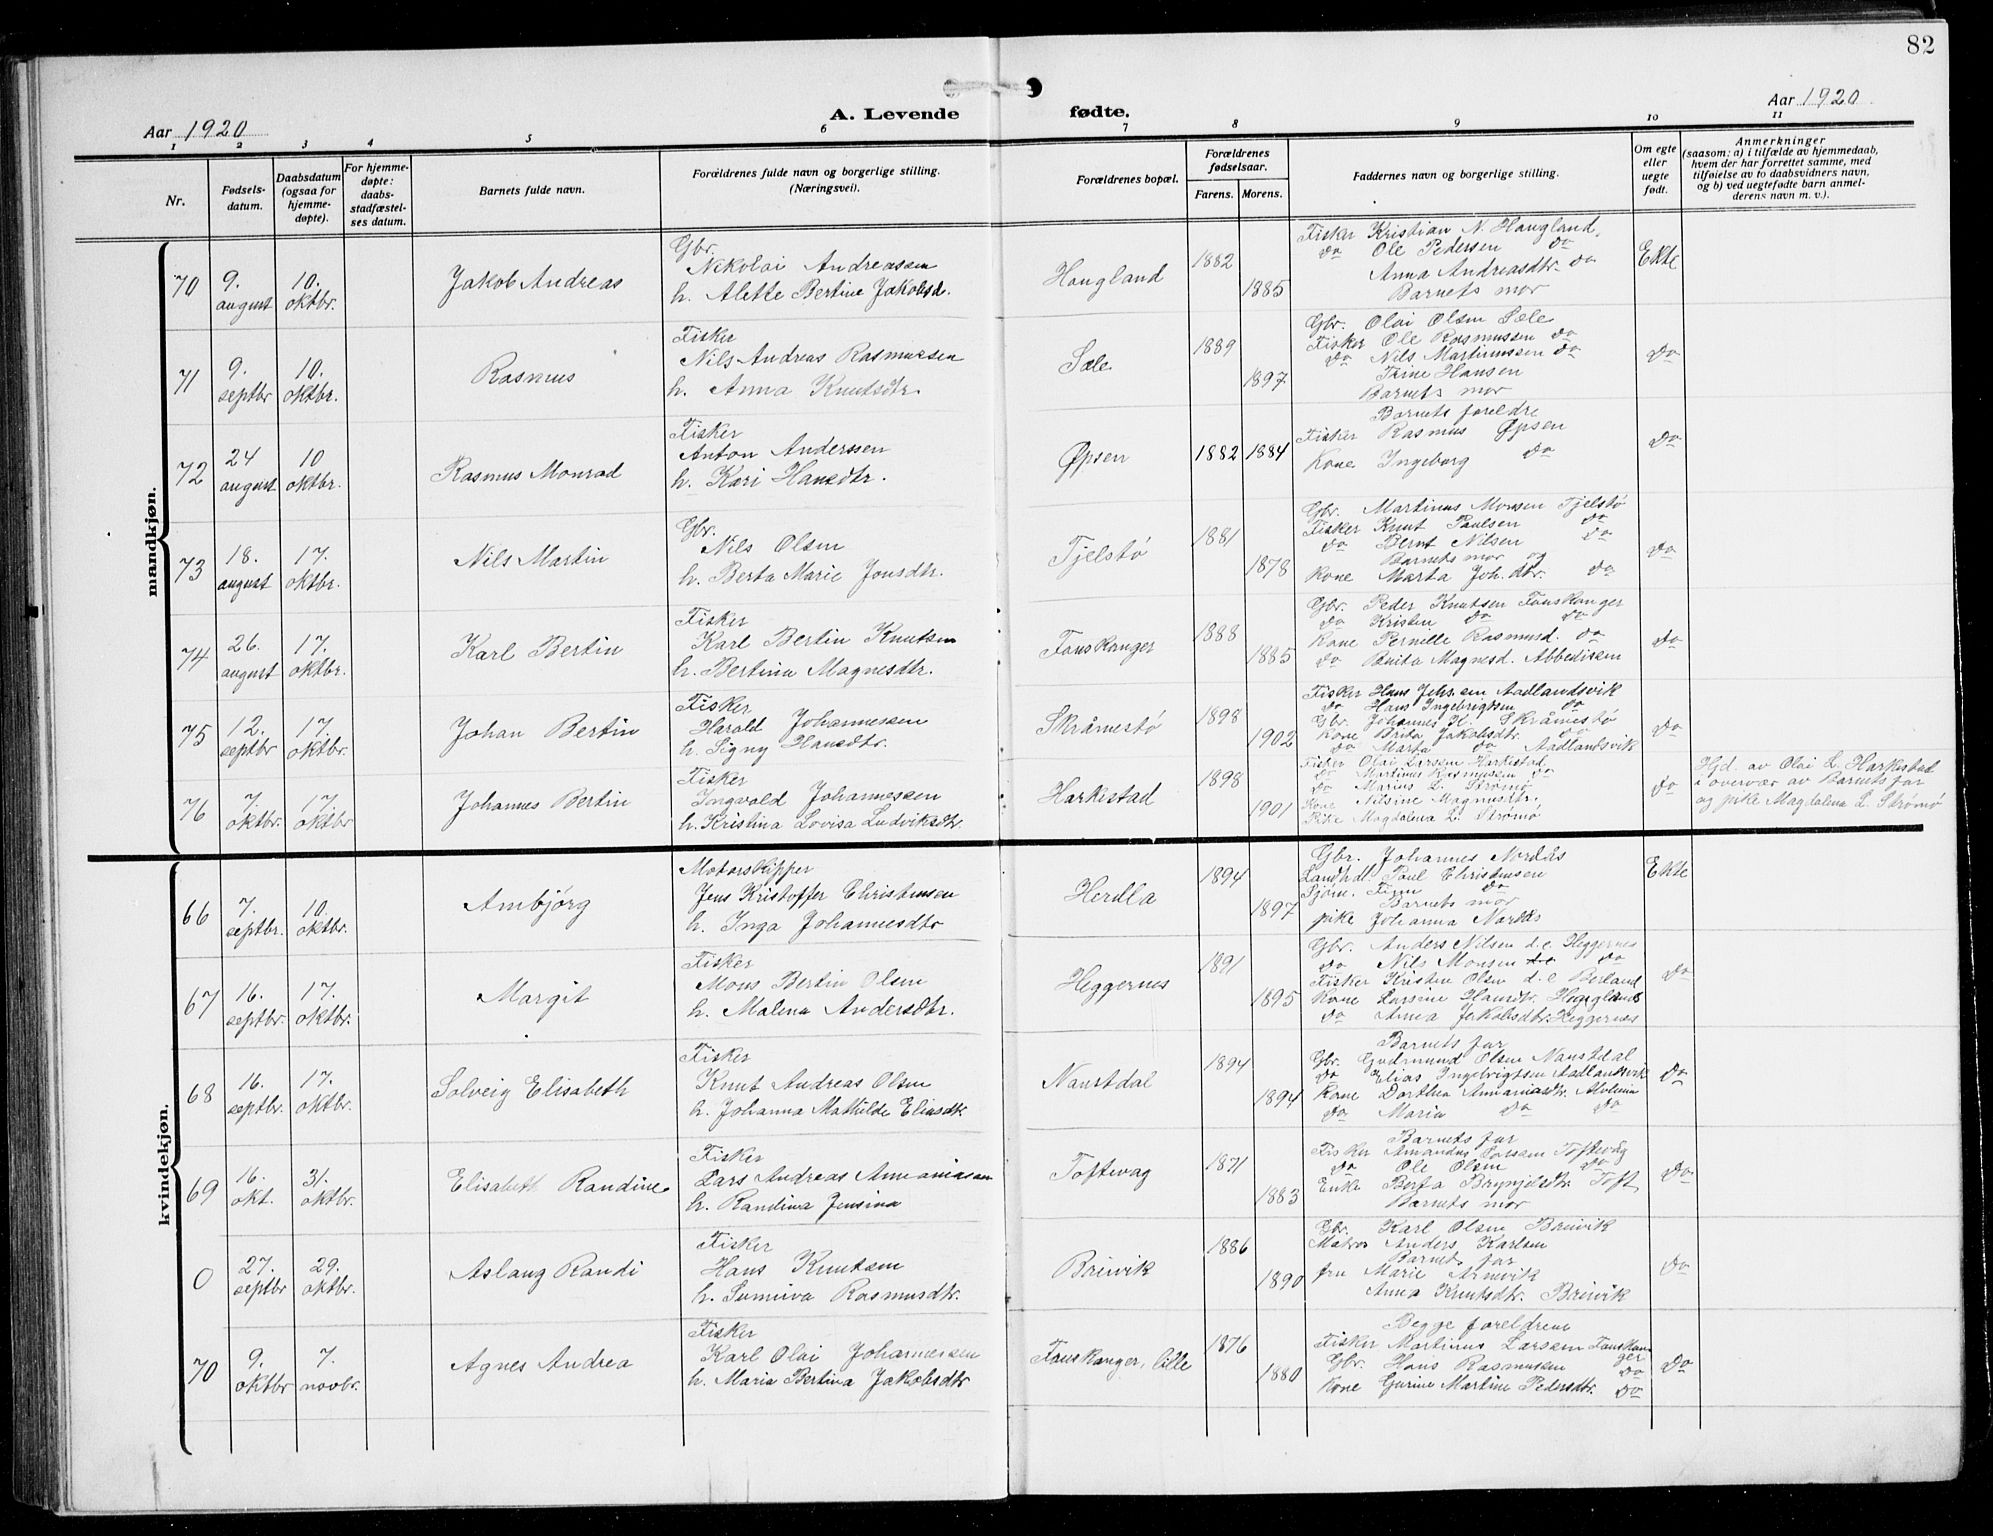 82
A. Levende fødte.
Aar 1920
Aar 1920
1 2 3 4 5 6 7 8 9 10 11
Nr.
Fødsels-
datum.
Daabsdatum
(ogsaa for
hjemme-
døpte).
For hjemme-
døpte:
daabs-
stadfæstel-
ses datum.
Barnets fulde navn.
Forældrenes fulde navn og borgerlige stilling.
(Næringsvei).
Forældrenes bopæl.
Forældrenes
fødselsaar.
Farens. Morens.
Faddernes navn og borgerlige stilling.
Om egte
eller
uegte
født.
Anmerkninger
(saasom: a) i tilfælde av hjemmedaab,
hvem der har forrettet samme, med
tilføielse av to daabsvidners navn,
og b) ved uegtefødte barn anmel-
derens navn m. v.).
mandkjøn.
70
9.
august
10.
oktbr.
Jakob Andreas
Gbr.
Nikolai Andreassen
h. Alette Bertine Jakobsd.
Haugland
1882
1885
Fisker Kristian N. Haugland,
do Ole Pedersen do
Anna Andreasdtr. do
Barnets mor
Ekte
71
9.
septbr
10.
oktbr.
Rasmus
Fisker
Nils Andreas Rasmussen
h. Anna Knutsdtr.
Sæle
1889
1897
Gbr. Olai Olsen Sæle
Fisker Ole Rasmussen do
do Nils Martinussen do
Trine Hansen
Barnets mor
do
72
24
august
10
oktbr.
Rasmus Monrad
Fisker
Anton Anderssen
h. Kari Hansdtr.
Øpsen
1882 1884
Barnets foreldre
Fisker Rasmus Øpsen
Kone Ingeborg do
do
73
18.
august
17.
oktbr.
Nils Martin
Gbr.
Nils Olsen
h. Berta Marie Jonsdtr.
Tjelstø
1881
1878
Gbr. Martinus Monsen Tjelstø
Fisker Knut Paulsen do
do Bernt Nilsen do
Barnets mor og
Kone Marta Joh.dtr. do
do
74
26.
august
17.
oktbr.
Karl Bertin
Fisker
Karl Bertin Knutsen
h. Bertina Magnesdtr.
Fonskanger
1888
1885
Gbr. Peder Knutsen Fonskanger
do Kristen do do
Kone Pernille Rasmusd. do
do Brita Magnesd. Abbedissen
do
75
12.
septbr
17.
oktbr.
Johan Bertin
Fisker
Harald Johannessen
h. Signy Hansdtr.
Skråmestø
1898
1902
Fisker Hans Johs.en Aadlandsvik
do Hans Ingebrigtsen do
Gbr. Johannes H. Skråmestø
Kone Brita Jakobsdtr. do
do Marta do Aadlandsvik
do
76
7.
oktbr.
17.
oktbr
Johannes Bertin
Fisker
Ingvald Johannessen
h. Kristina Lovisa Ludviksdtr.
Harkestad
1898
1901
Fisker Olai Larsen Harkestad
do Martinus Rasmussen do
do Marius L. Strømø
Kone Nilsine Magnusdtr.
Pike Magdalena L. Strømø
do
Hjd. av Olai L. Harkestad
i overvær av Barnets far
og pike Magdalena L. Strømø
kvindekjøn.
66
7.
septbr.
10.
oktbr.
Ambjørg
Motorskipper
Jens Kristoffer Christensen
h. Inga Johannesdtr
Herdla
1894
1897
Gbr. Johannes Nordås
Landhdl. Paul Christensen
Sjøm. Finn do
Barnets mor
pike Johanna Nordås
Ekte
67
16.
septbr.
17.
oktbr.
Margit
Fisker
Mons Bertin Olsen
h. Malena Andersdtr.
Heggernes
1891
1895
Gbr. Anders Nilsen d.e. Heggernes
do Nils Monsen do
Fisker Kristen Olsen d.e Berland
Kone Larsine Hansdtr.
do Anna Jakobsdtr. Heggernes
do
68
16.
septbr.
17.
oktbr.
Solveig Elisabeth
Fisker
Knut Andreas Olsen
h. Johanna Mathilde Eliasdtr.
Naustdal
1894
1894
Barnets far
Gbr. Gudmund Olsen Naustdal
do Elias Ingebrigtsen Aadlandsvik
Kone Dorthea Annaniasdtr.
do Maria do do
do
69
16.
okt.
31.
oktbr.
Elisabeth Randine
Fisker
Lars Andreas Annaniassen
h. Randina Jensina
Toftevag
1871
1883
Barnets far
Fisker Amandus Larsen Toftevåg
do Ole Olsen do
Enke Berta Brynjelsdtr. Toft
Barnets mor
do
0
27.
septbr
29.
oktbr.
Aslaug Randi
Fisker
Hans Knutsen
h. Sunniva Rasmusdtr.
Breivik
1886
1890
Gbr. Karl Olsen Breivik
Matros Anders Karlsen
Barnets far
fru Marie Arnevik
Anna Knutsdtr. Breivik
do
70
9.
oktbr
7.
novbr.
Agnes Andrea
Fisker
Karl Olai Johannessen
h. Maria Bertina Jakobsdtr
Fonskanger, lille
1876
1880
Begge foreldrene
Fisker Martinus Larsen Fonskan
ger
Gbr. Hans Rasmussen do
Kone Gurine Martine Pedersdtr. do
do